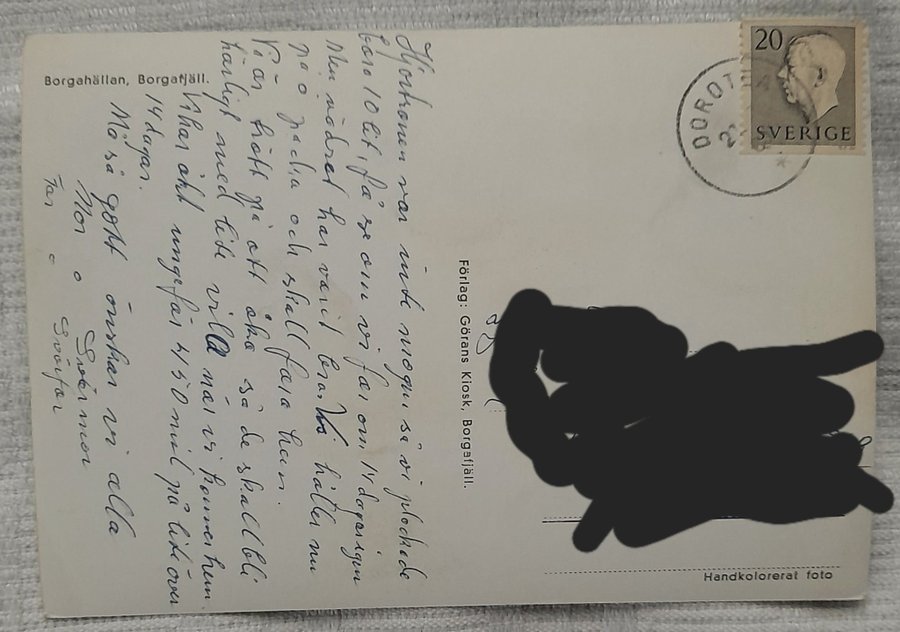 Borgahällan, Borgafjäll.
Hjortronen var inte mogna så vi plockade
bara 10 lit, få se om vi far om 14 dagar igen
Min nådret har varit bra. Vi håller nu
på o packa och skall fara hem.
Vi är trött på att åka så de skall bli
härligt med lite vila när vi kommer hem.
Vi har åkt ungefär 450 mil på lite över
14 dagar.
Må så gott önskar vi alla
Mor o Svärmor
Far o Svärfar
Förlag: Görans Kiosk, Borgafjäll.
20
SVERIGE
DOROT
Handkolorerat foto